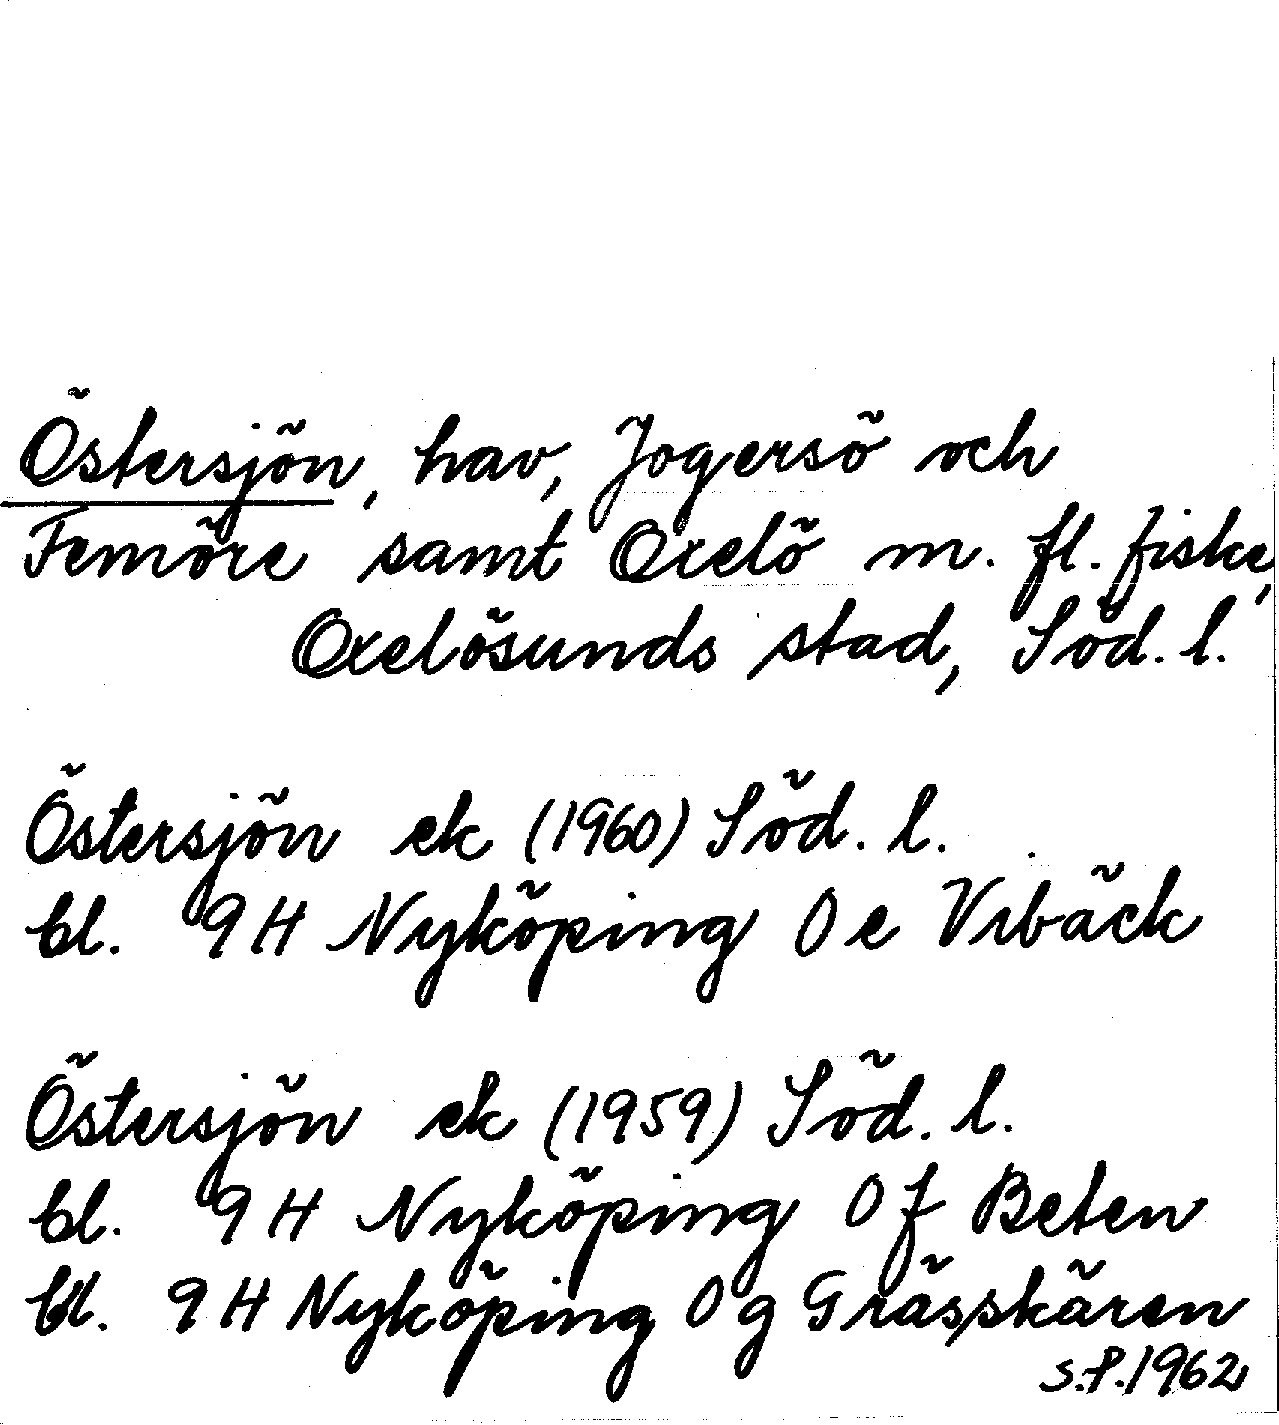 Östersjön, hav, Jogersö och
Femöre samt Oxelö m. fl. fiske,
Oxelösunds stad, Söd. l.
Östersjön ek (1960) Söd. l.
bl. 9H Nyköping 0e Vrbäck
Östersjön ek (1959) Söd. l.
bl. 9H Nyköping 0f Beten
bl. 9H Nyköping 0g Grässkären
S.P. 1962